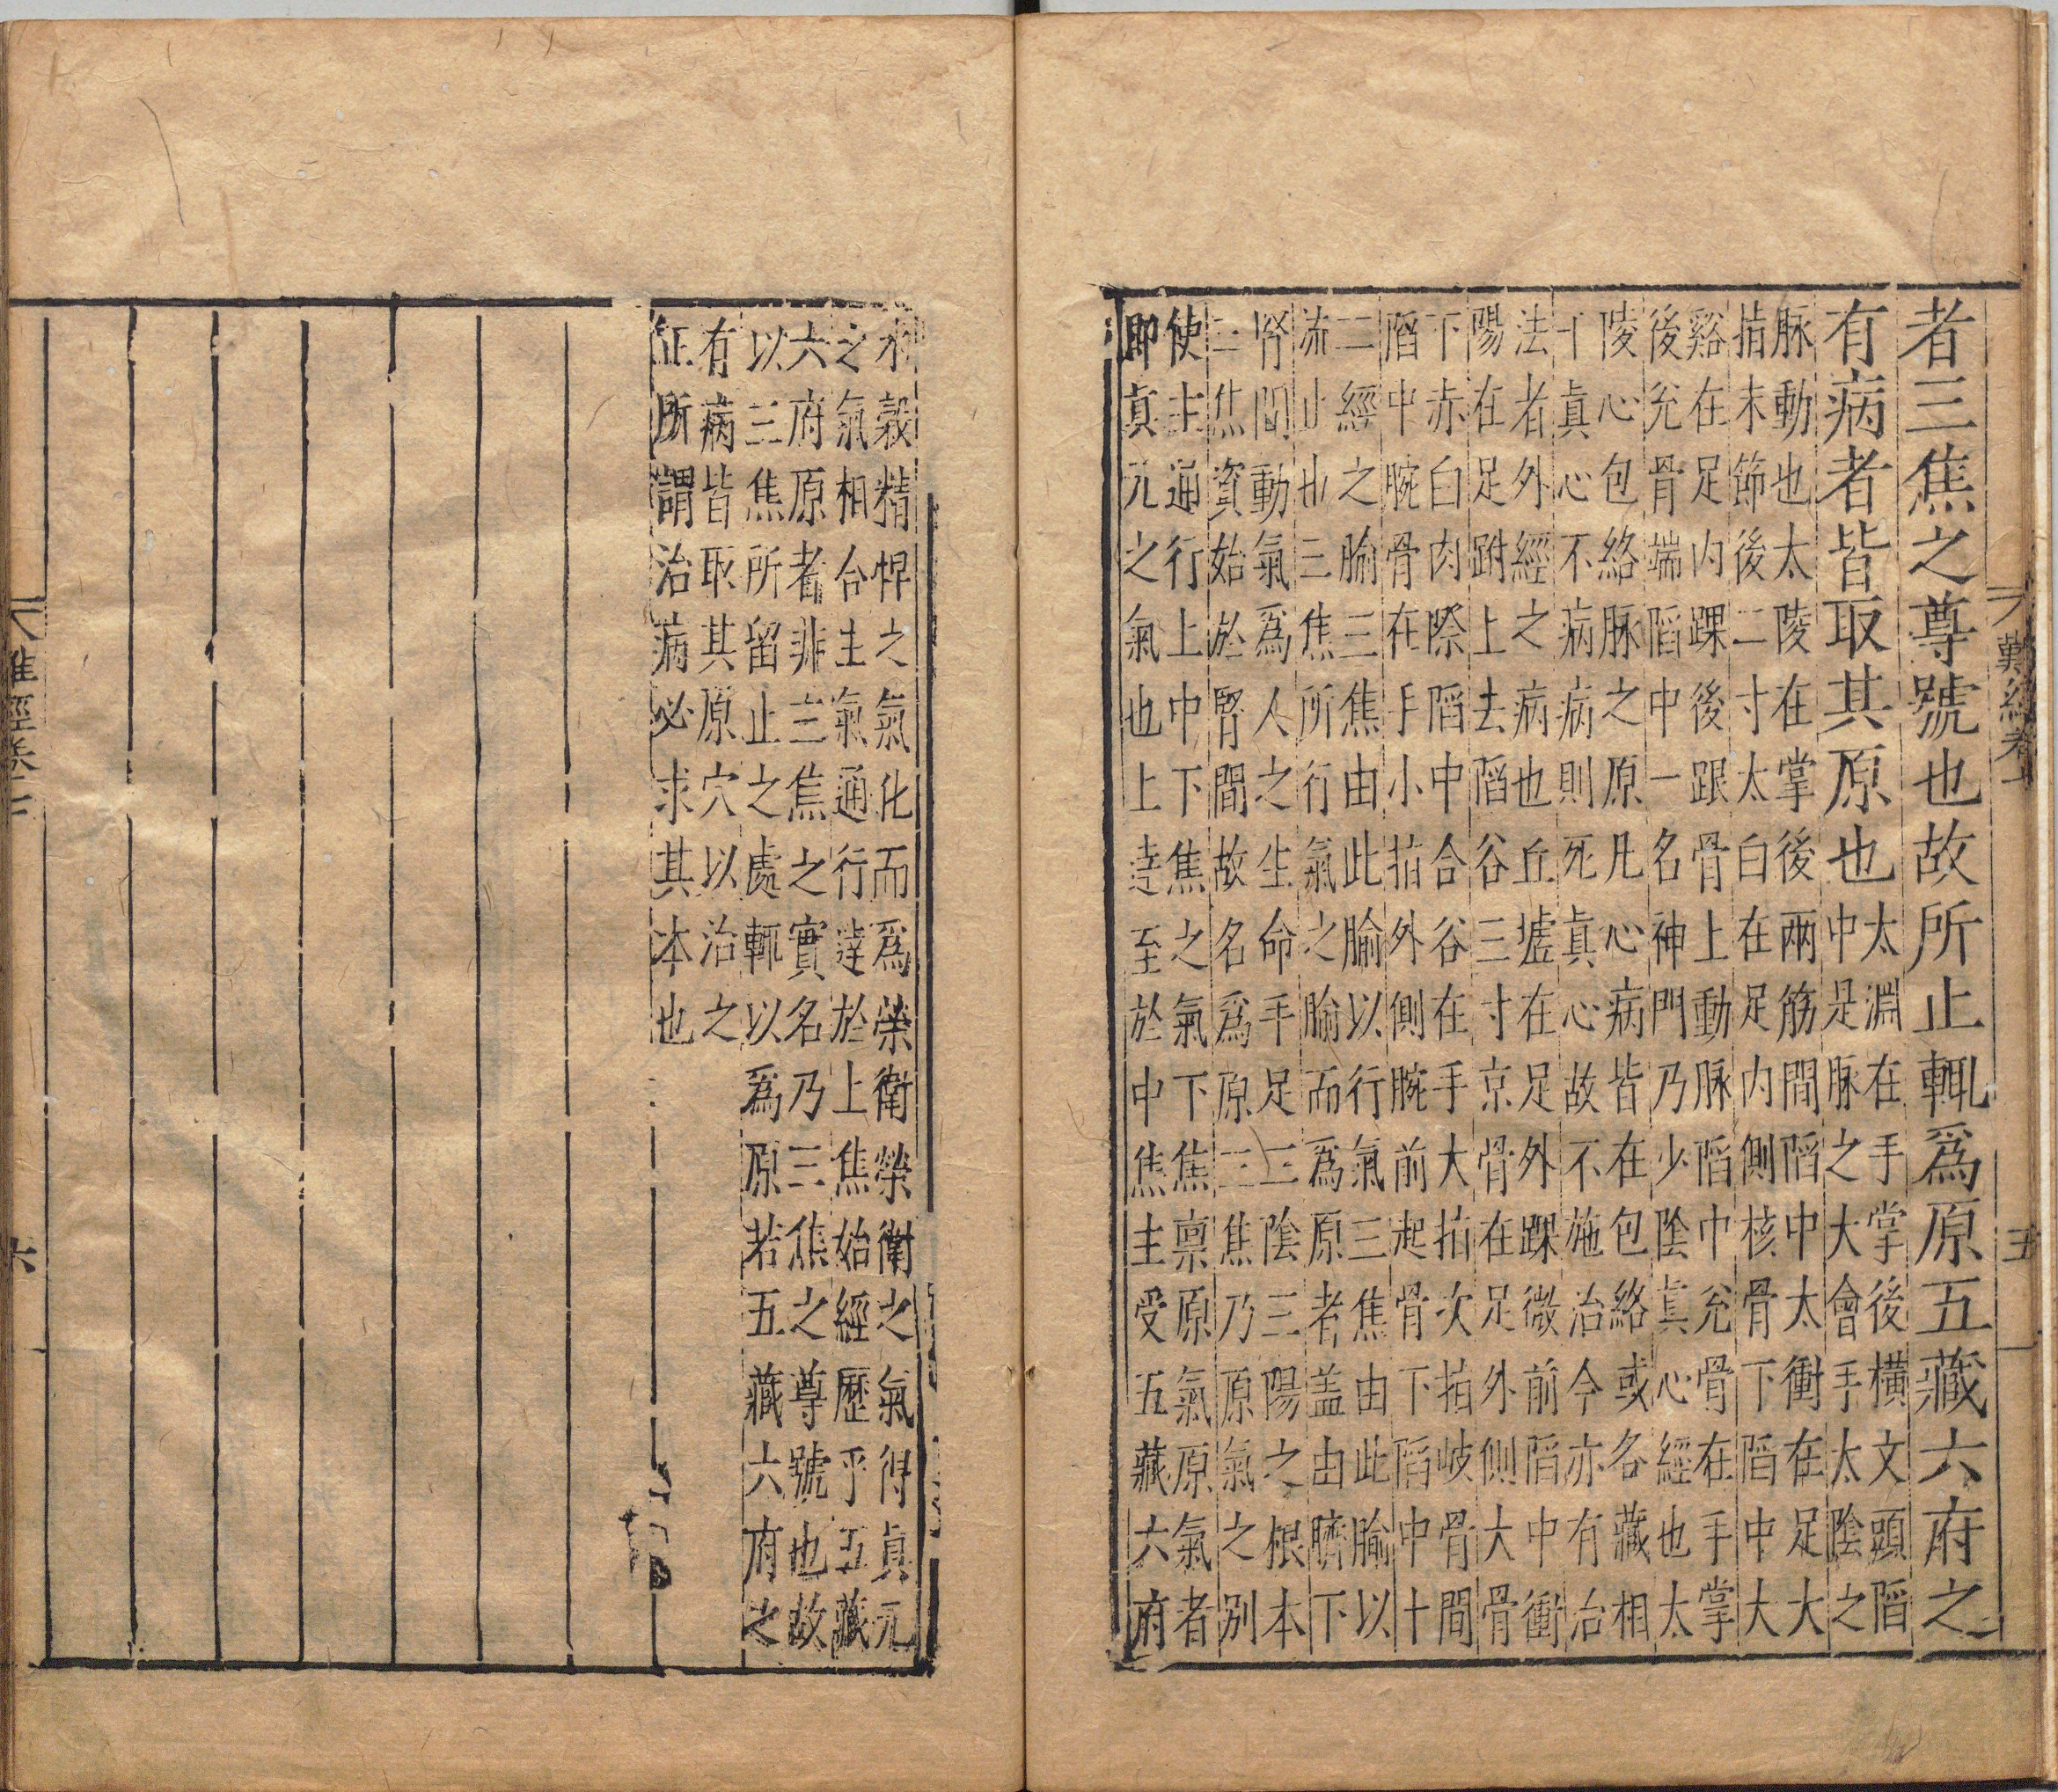 者三焦之尊號也故所止輒爲原五藏六府之
有病者皆取其原也
太淵在手掌後橫文頭陷
中是脉之大會手太陰之
脉動也太陵在掌後兩筋間陷中太衝在足大
指末節後二寸太白在足內側核骨下陷中大
谿在足內踝後跟骨上動脉陷中兊骨在手掌
後兊骨端陷中一名神門乃少陰真心經也太
陵心包絡脉之原凡心病皆在包絡或各藏相
干真心不病病則死真心故不施治今亦有治
法者外經之病也丘墟在足外踝微前陷中衝
陽在足跗上去陷谷三寸京骨在足外側大骨
下赤白肉際陷中合谷在手大指次指岐骨間
陷中腕骨在手小指外側腕前起骨下陷中十
二經之腧三焦由此腧以行氣三焦由此腧以
流止也三焦所行氣之腧而爲原者盖由臍下
腎間動氣爲人之生命手足三陰三陽之根本
三焦資始於腎間故名爲原三焦乃原氣之別
使主通行上中下焦之氣下焦禀原氣原氣者
即真元之氣也上達至於中焦主受五藏六府
水穀精悍之氣化而爲榮衛榮衛之氣得真元
之氣相合主氣通行達於上焦始經歷乎五藏
六府原者非三焦之實名乃三焦之尊號也故
以三焦所留止之處輒以爲原若五藏六府之
有病皆取其原穴以治之
正所謂治病必求其本也
難經卷
五
難經卷
六